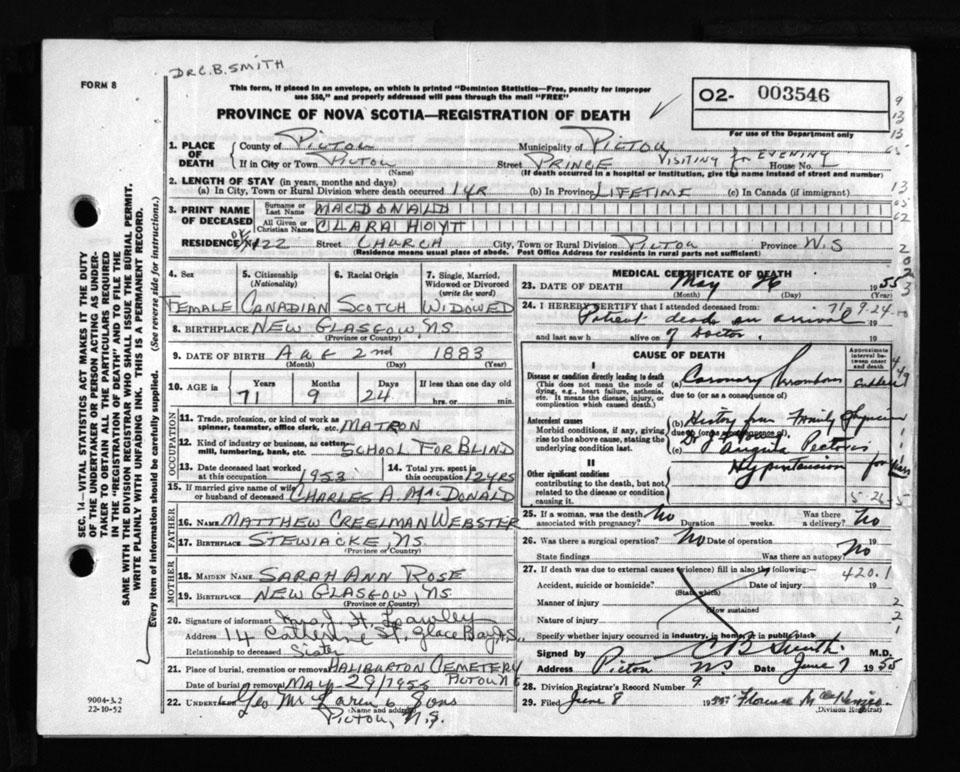 DR C.B. SMITH
FORM 8
This form, if placed in an envelope, on which is printed "Dominion Statistics—Free, penalty for improper
use $50," and properly addressed will pass through the mail "FREE"
PROVINCE OF NOVA SCOTIA—REGISTRATION OF DEATH
02- 003546
For use of the Department only
1. PLACE OF DEATH
County of PICTOU Municipality of PICTOU
If in City or Town PICTOU Street PRINCE VISITING for EVENING House No.
(Name) (If death occurred in a hospital or institution, give the name instead of street and number)
2. LENGTH OF STAY (in years, months and days)
(a) In City, Town or Rural Division where death occurred 1 YR (b) In Province LIFETIME (c) In Canada (if immigrant)
3. PRINT NAME OF DECEASED
Surname or Last Name MACDONALD
All Given or Christian Names CLARA HOYT
RESIDENCE 122 Street CHURCH City, Town or Rural Division PICTOU Province N.S
(Residence means usual place of abode. Post Office Address for residents in rural parts not sufficient)
4. Sex 5. Citizenship (Nationality) 6. Racial Origin 7. Single, Married, Widowed or Divorced (write the word)
FEMALE CANADIAN SCOTCH WIDOWED
8. BIRTHPLACE NEW GLASGOW, NS
(Province or Country)
9. DATE OF BIRTH AUG 2nd 1883
(Month) (Day) (Year)
10. AGE IN Years Months Days If less than one day old
71 9 24 hrs. or min.
OCCUPATION
11. Trade, profession, or kind of work as spinner, teamster, office clerk, etc. MATRON
12. Kind of industry or business, as cotton-mill, lumbering, bank, etc. SCHOOL FOR BLIND
13. Date deceased last worked at this occupation 1953 14. Total yrs. spent in this occupation 12 YRS
15. If married give name of wife or husband of deceased CHARLES A. MACDONALD
FATHER
16. NAME MATTHEW CREELMAN WEBSTER
17. BIRTHPLACE STEWIACKE, NS
(Province or Country)
MOTHER
18. MAIDEN NAME SARAH ANN ROSE
19. BIRTHPLACE NEW GLASGOW, NS
(Province or Country)
20. Signature of informant Mrs J. H.
Address 14 Catherine St, Glace Bay, N.S.
Relationship to deceased Sister
21. Place of burial, cremation or removal HALIBURTON CEMETERY
Date of burial or removal MAY 29/1955 PICTOU NS
22. UNDERTAKER Geo McLaren & Sons
(Name and address)
Pictou, N.S.
MEDICAL CERTIFICATE OF DEATH
23. DATE OF DEATH May 26 1955
(Month) (Day) (Year)
24. I HEREBY CERTIFY that I attended deceased from: 71-9-24
Patient dead on arrival 19
and last saw h alive on of Doctor 19
CAUSE OF DEATH
Approximate interval between onset and death
I
Disease or condition directly leading to death
(This does not mean the mode of dying, e.g., heart failure, asthenia, etc. It means the disease, injury, or complication which caused death.)
(a) Coronary Thrombosis sudden
due to (or as a consequence of)
Antecedent causes
Morbid conditions, if any, giving rise to the above cause, stating the underlying condition last.
(b) History from Family Physician
due to (or as a consequence of)
(c) Angina Pectoris
II
Other significant conditions
contributing to the death, but not related to the disease or condition causing it.
Hypertension for years
5-26-5
25. If a woman, was the death associated with pregnancy? No Duration weeks. Was there a delivery? No
26. Was there a surgical operation? No Date of operation 19
State findings Was there an autopsy? No
27. If death was due to external causes (violence) fill in also the following:— 420.1
Accident, suicide or homicide? Date of injury 19
(State which)
Manner of injury
(How sustained
Nature of injury
Specify whether injury occurred in industry, in home, or in public place
Signed by C B Smith M.D.
Address Pictou NS Date June 7 1955
28. Division Registrar's Record Number 9
29. Filed June 8 1955 Florence McKenzie
(Division Registrar)
SEC. 14—VITAL STATISTICS ACT MAKES IT THE DUTY
OF THE UNDERTAKER OR PERSON ACTING AS UNDER-
TAKER TO OBTAIN ALL THE PARTICULARS REQUIRED
IN THE "REGISTRATION OF DEATH" AND TO FILE THE
SAME WITH THE DIVISION REGISTRAR WHO SHALL ISSUE THE BURIAL PERMIT.
WRITE PLAINLY WITH UNFADING INK. THIS IS A PERMANENT RECORD.
Every item of information should be carefully supplied. (See reverse side for instructions.)
9004-3.2
22-10-52